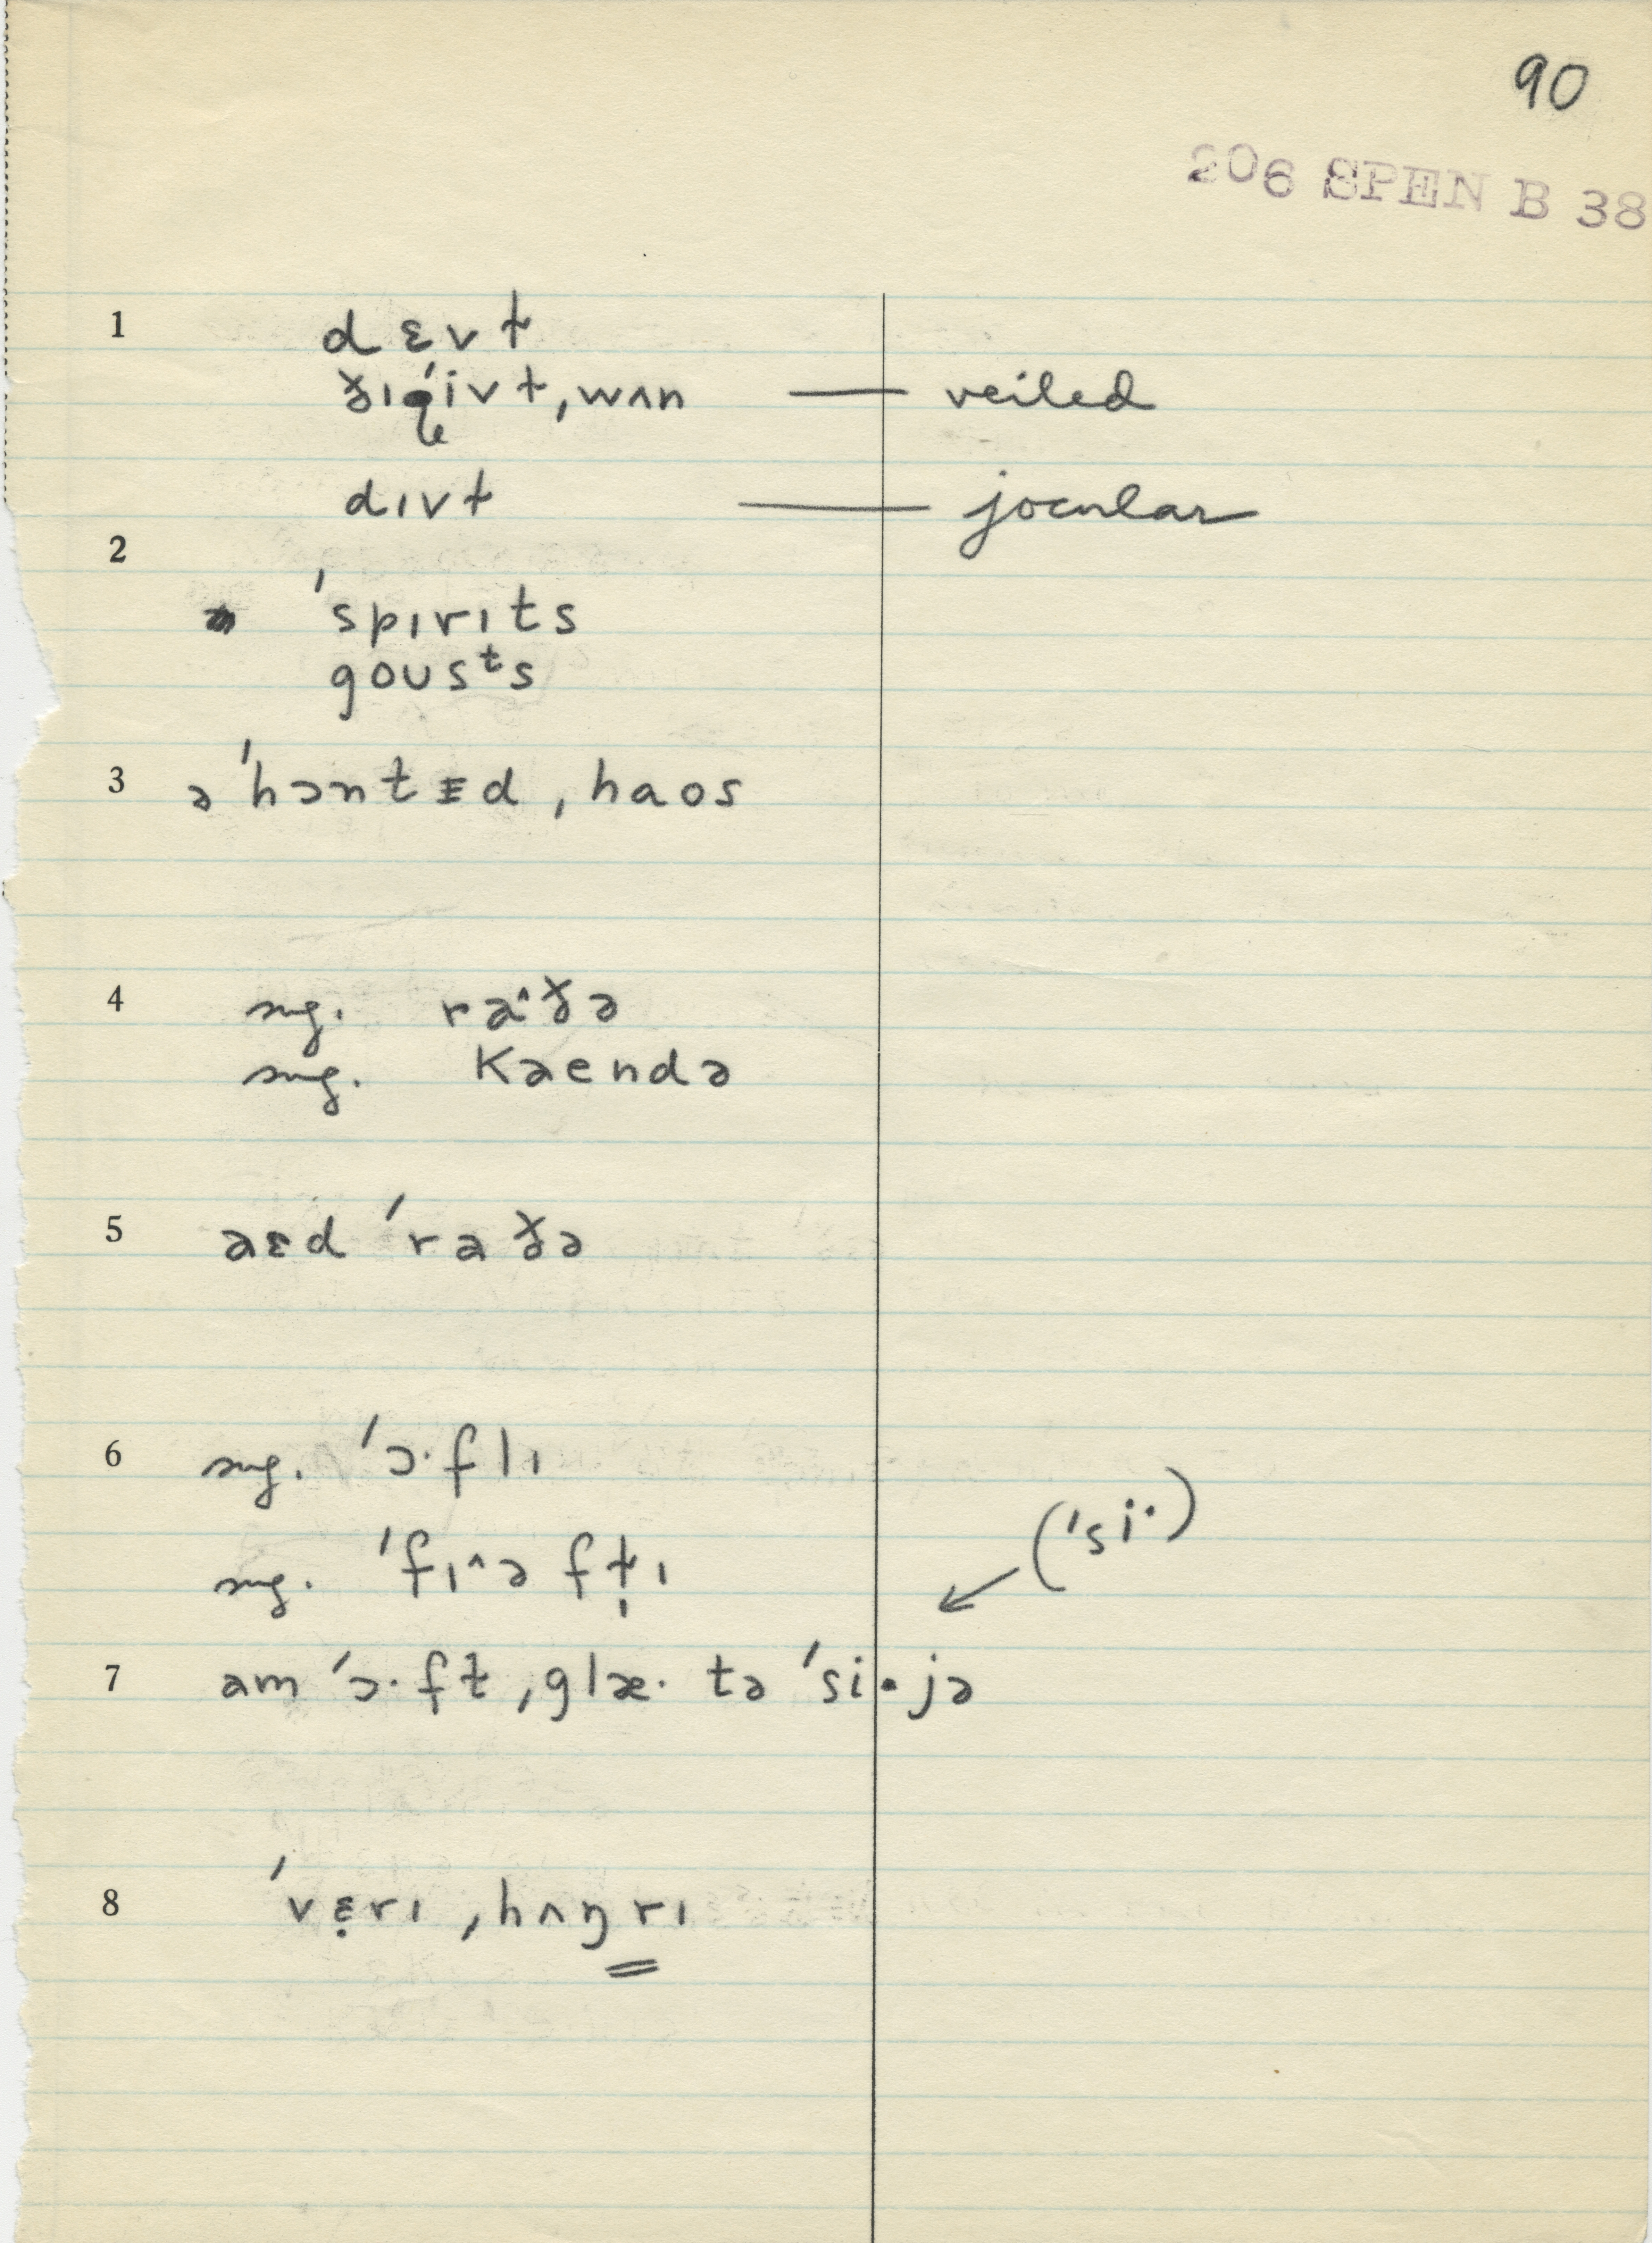 90
206 SPEN B 38
1 dɛvɫ
ðɪˈivɫ ˌwʌn — veiled
dɪvɫ — jocular
2
ˈspɪrɪts
goʊsᵗs
3 əˈhɔntɪd ˌhaos
4 sug. ra^ðə
sug. kaendə
5 aɛd ˈraðə
6 sug. ˈɔ·flɪ
sug. ˈfɪ^ə fɫ̩ɪ
(ˈsi·)
7 am ˈɔ·fɫ ˌglæ· tə ˈsi·jə
8 ˈvɛ̣rɪ ˌhʌŋrɪ